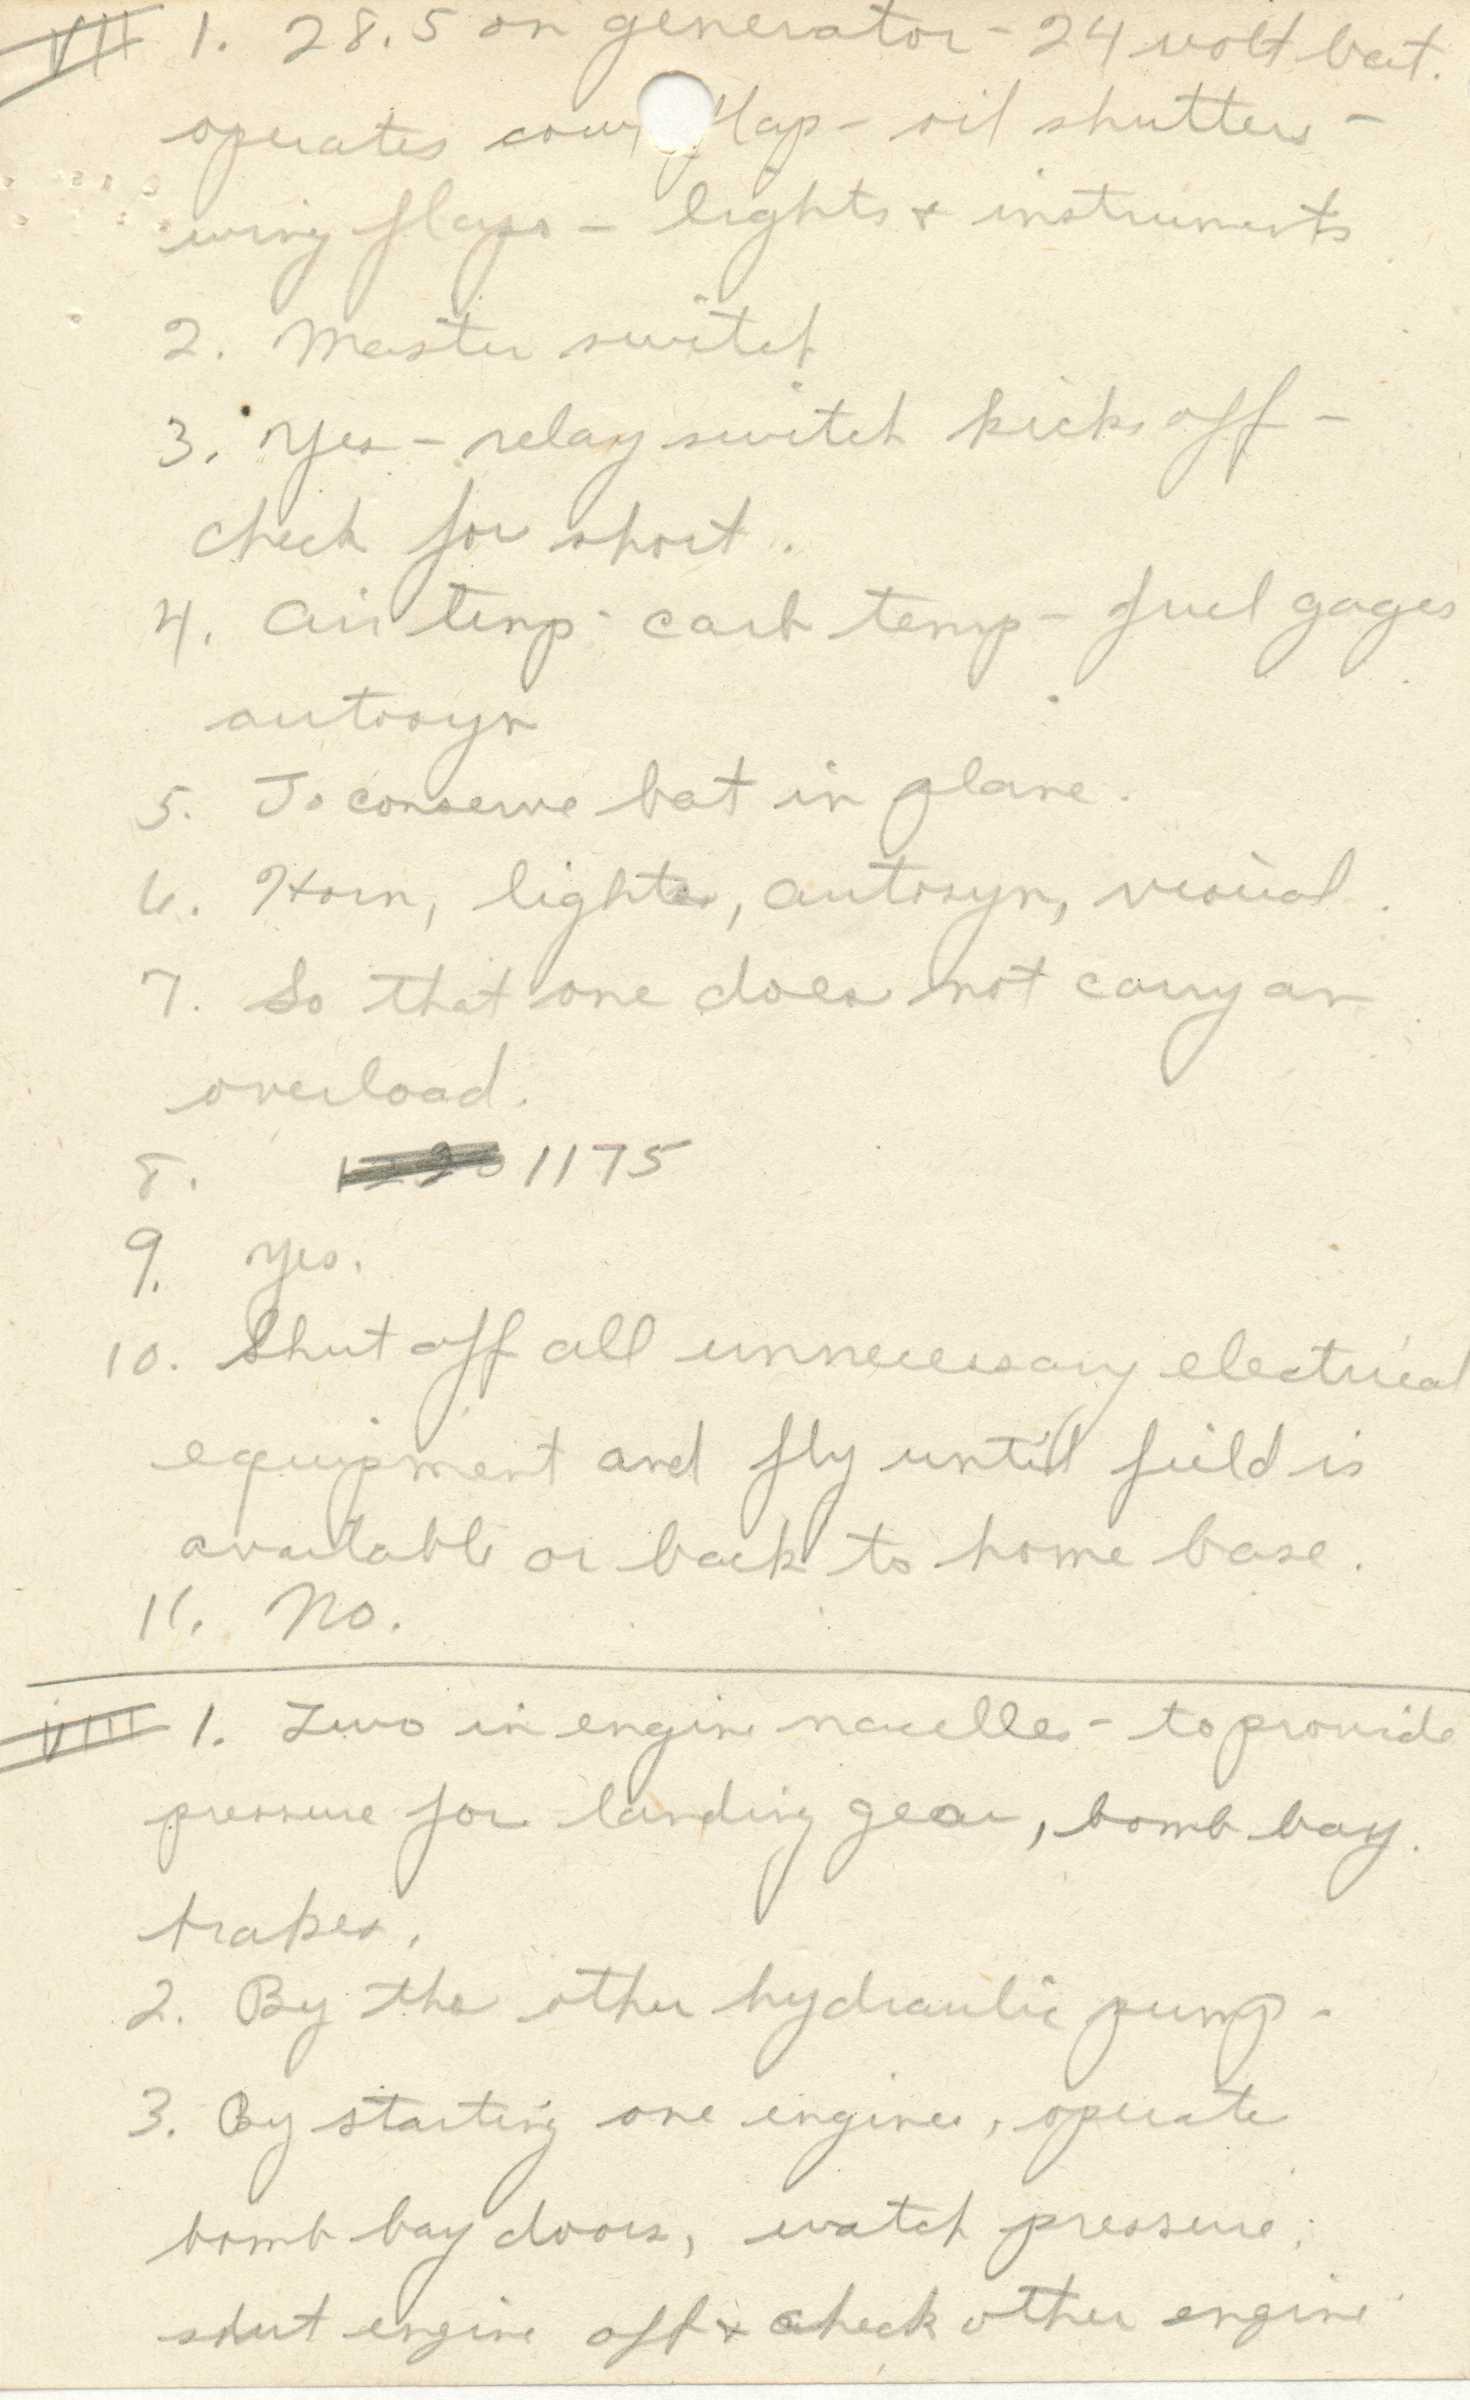 VII 1. 28.5 on generator - 24 volt bat.
operates cowl flap - oil shutters -
wing flaps - lights & instruments
2. Master switch
3. Yes - relay switch kicks off -
check for short.
4. Air temp - carb temp - fuel gages
autosyn
5. To conserve bat in plane.
6. Horn, lights, autosyn, visual.
7. So that one does not carry an
overload.
8. 1175
9. Yes.
10. Shut off all unnecessary electrical
equipment and fly until field is
available or back to home base.
11. No.
VIII 1. Two in engine nacelles - to provide
pressure for landing gear, bomb bay.
brakes.
2. By the other hydraulic pump -
3. By starting one engine, operate
bomb bay doors, watch pressure,
shut engine off & check other engine